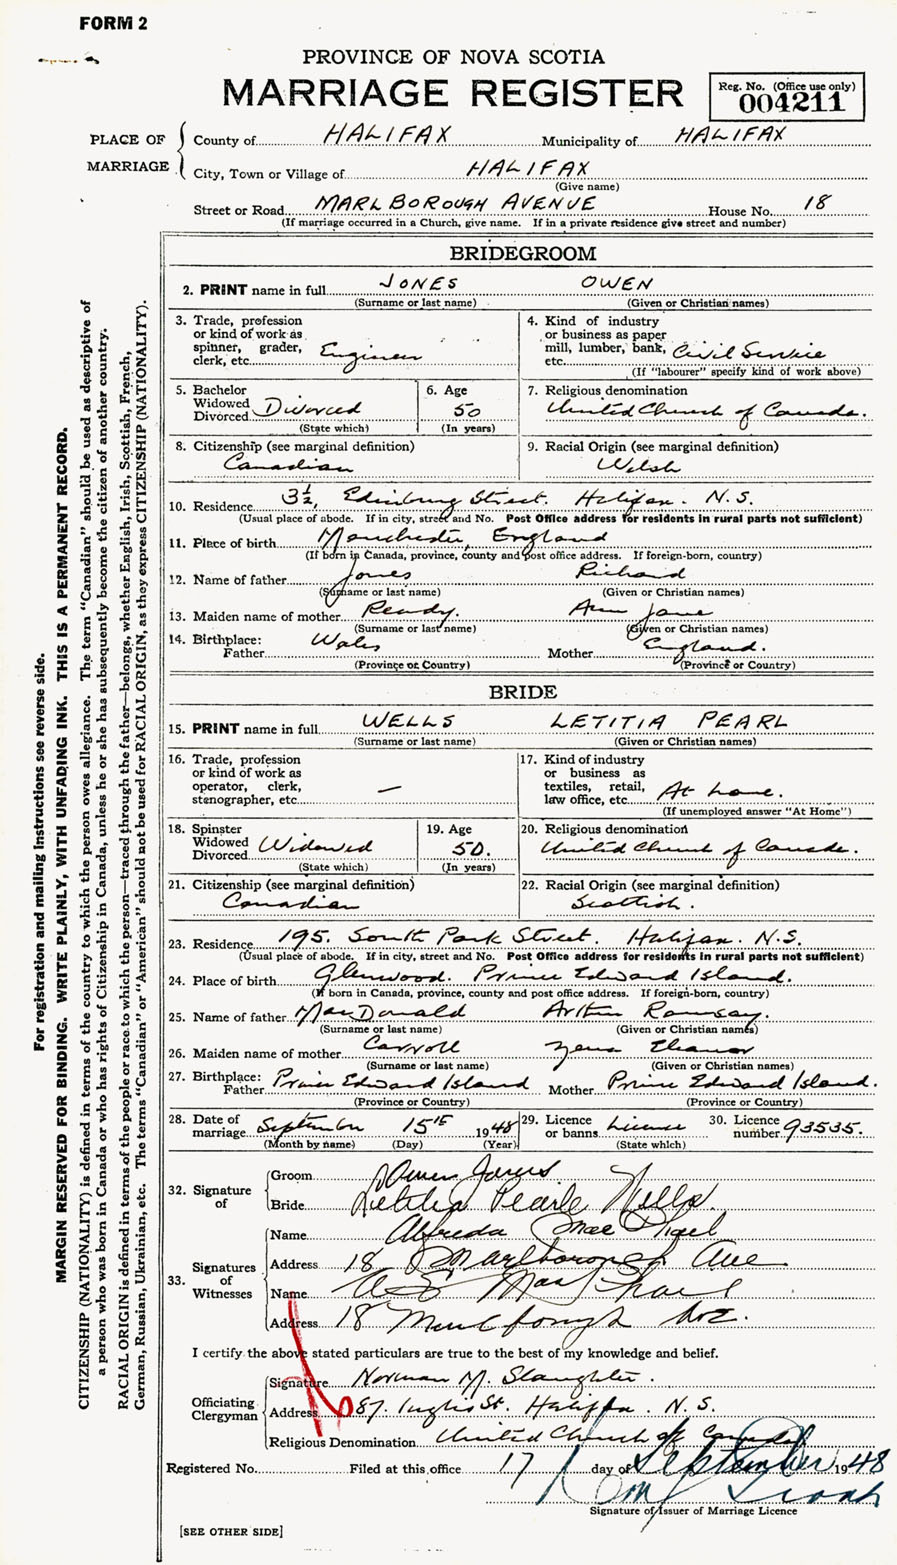 FORM 2
PROVINCE OF NOVA SCOTIA
MARRIAGE REGISTER
Reg. No. (Office use only)
004211
PLACE OF MARRIAGE
County of HALIFAX Municipality of HALIFAX
City, Town or Village of HALIFAX
(Give name)
Street or Road MARLBOROUGH AVENUE House No. 18
(If marriage occurred in a Church, give name. If in a private residence give street and number)
BRIDEGROOM
2. PRINT name in full JONES OWEN
(Surname or last name) (Given or Christian names)
3. Trade, profession or kind of work as spinner, grader, clerk, etc. Engineer
4. Kind of industry or business as paper mill, lumber, bank, etc. Civil Service
(If "labourer" specify kind of work above)
5. Bachelor Widowed Divorced Divorced
(State which)
6. Age 50
(In years)
7. Religious denomination
United Church of Canada.
8. Citizenship (see marginal definition)
Canadian
9. Racial Origin (see marginal definition)
Welsh
10. Residence 3½, Edinburg Street. Halifax. N.S.
(Usual place of abode. If in city, street and No. Post Office address for residents in rural parts not sufficient)
11. Place of birth Manchester, England
(If born in Canada, province, county and post office address. If foreign-born, country)
12. Name of father Jones Richard
(Surname or last name) (Given or Christian names)
13. Maiden name of mother Ready. Ann Jane
(Surname or last name) (Given or Christian names)
14. Birthplace:
Father Wales Mother England.
(Province or Country) (Province or Country)
BRIDE
15. PRINT name in full WELLS LETITIA PEARL
(Surname or last name) (Given or Christian names)
16. Trade, profession or kind of work as operator, clerk, stenographer, etc. —
17. Kind of industry or business as textiles, retail, law office, etc. At home.
(If unemployed answer "At Home")
18. Spinster Widowed Divorced Widowed
(State which)
19. Age 50.
(In years)
20. Religious denomination
United Church of Canada.
21. Citizenship (see marginal definition)
Canadian
22. Racial Origin (see marginal definition)
Scottish.
23. Residence 195. South Park Street. Halifax. N.S.
(Usual place of abode. If in city, street and No. Post Office address for residents in rural parts not sufficient)
24. Place of birth Glenwood. Prince Edward Island.
(If born in Canada, province, county and post office address. If foreign-born, country)
25. Name of father MacDonald Arthur Ramsay.
(Surname or last name) (Given or Christian names)
26. Maiden name of mother Carroll Eleanor
(Surname or last name) (Given or Christian names)
27. Birthplace:
Father Prince Edward Island Mother Prince Edward Island.
(Province or Country) (Province or Country)
28. Date of marriage September 15th 1948
(Month by name) (Day) (Year)
29. Licence or banns License
(State which)
30. Licence number 93535.
32. Signature of
Groom Owen Jones.
Bride Letitia Pearle Wells.
33. Signatures of Witnesses
Name Alfreda MacPhail
Address 18 Marlborough Ave
Name MacPhail
Address 18 Marlborough Ave.
I certify the above stated particulars are true to the best of my knowledge and belief.
Officiating Clergyman
Signature Norman M. Slaughter.
Address 87. Inglis St. Halifax. N.S.
Religious Denomination United Church of Canada
Registered No. Filed at this office 17 day of September 1948
Signature of Issuer of Marriage Licence
[SEE OTHER SIDE]
For registration and mailing instructions see reverse side.
MARGIN RESERVED FOR BINDING. WRITE PLAINLY, WITH UNFADING INK. THIS IS A PERMANENT RECORD.
CITIZENSHIP (NATIONALITY) is defined in terms of the country to which the person owes allegiance. The term "Canadian" should be used as descriptive of
a person who was born in Canada or who has rights of Citizenship in Canada, unless he or she has subsequently become the citizen of another country.
RACIAL ORIGIN is defined in terms of the people or race to which the person—traced through the father—belongs, whether English, Irish, Scottish, French,
German, Russian, Ukrainian, etc. The terms "Canadian" or "American" should not be used for RACIAL ORIGIN, as they express CITIZENSHIP (NATIONALITY).